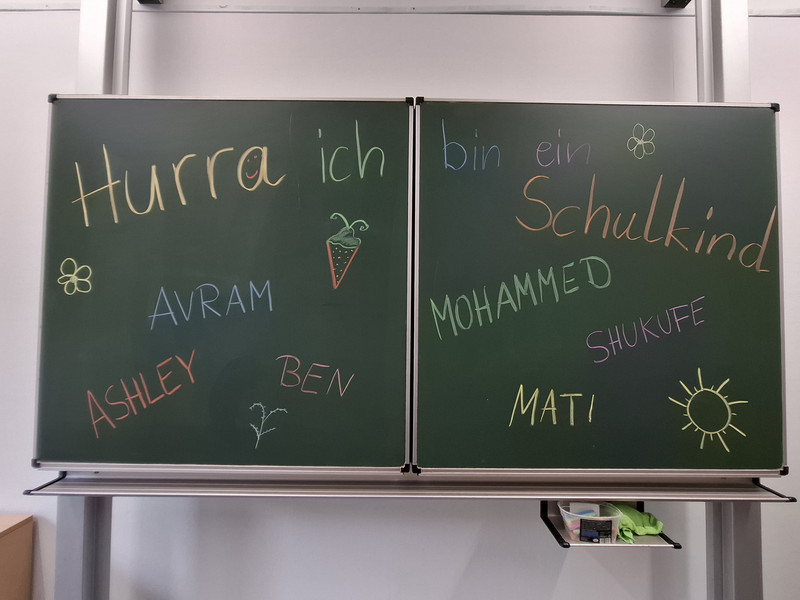 Hurra ich bin ein
Schulkind
AVRAM
ASHLEY
BEN
MOHAMMED
SHUKUFE
MATI